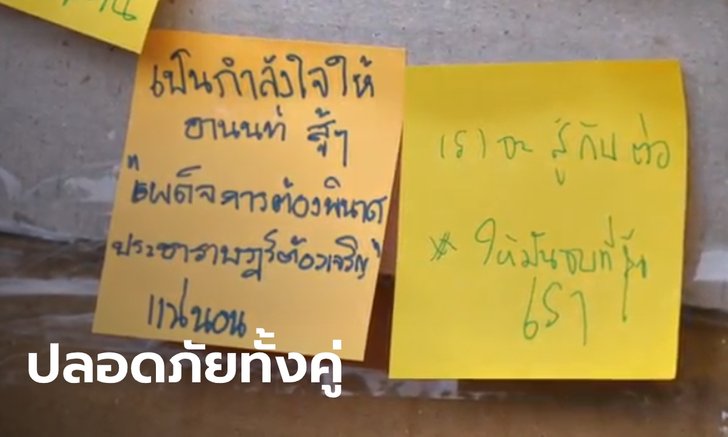 เป็นกำลังใจให้
อานนท์ สู้ๆ
"เผด็จการต้องพินาศ
ประชาราษฎร์ต้องเจริญ"
แน่นอน
เราจะ สู้กันต่อ
* ให้มันจบที่รุ่น
เรา
ปลอดภัยทั้งคู่